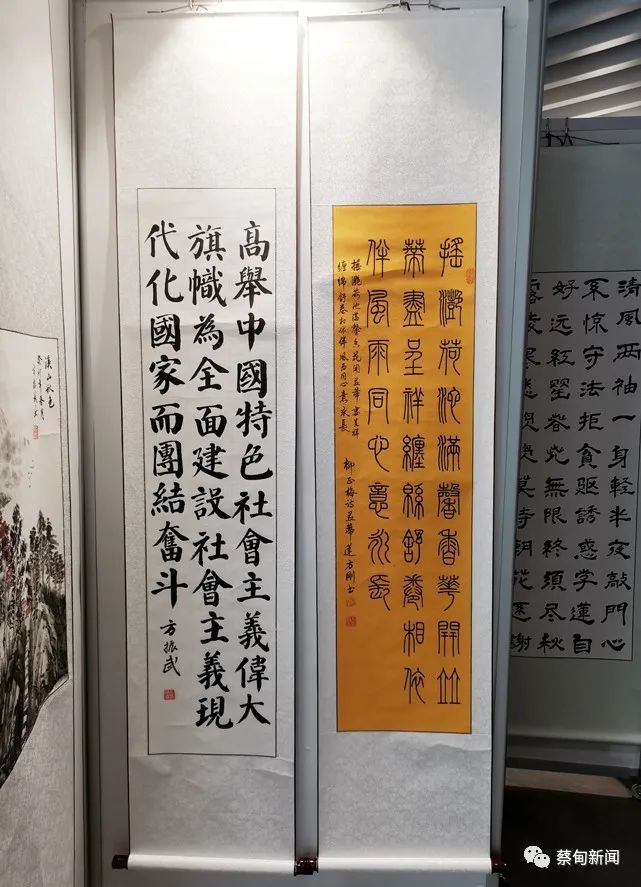 溪山秋色
高舉中國特色社會主義偉大
旗幟為全面建設社會主義現
代化國家而團結奮斗
方振武
搖灧荷池滿馨香華開並
蒂盡呈祥纏緜舒卷相依
伴風雨同心意永長
搖灧荷池滿馨香花開並蒂盡呈祥
纏綿舒卷相依伴風雨同心意永長
柳正梅诗並蒂蓮方刚书
清風两袖一身輕半夜敲門心
系惊守法拒貪驱誘惑学蓮自
好远紅塵眷无限終須尽秋
花 謝
蔡甸新闻